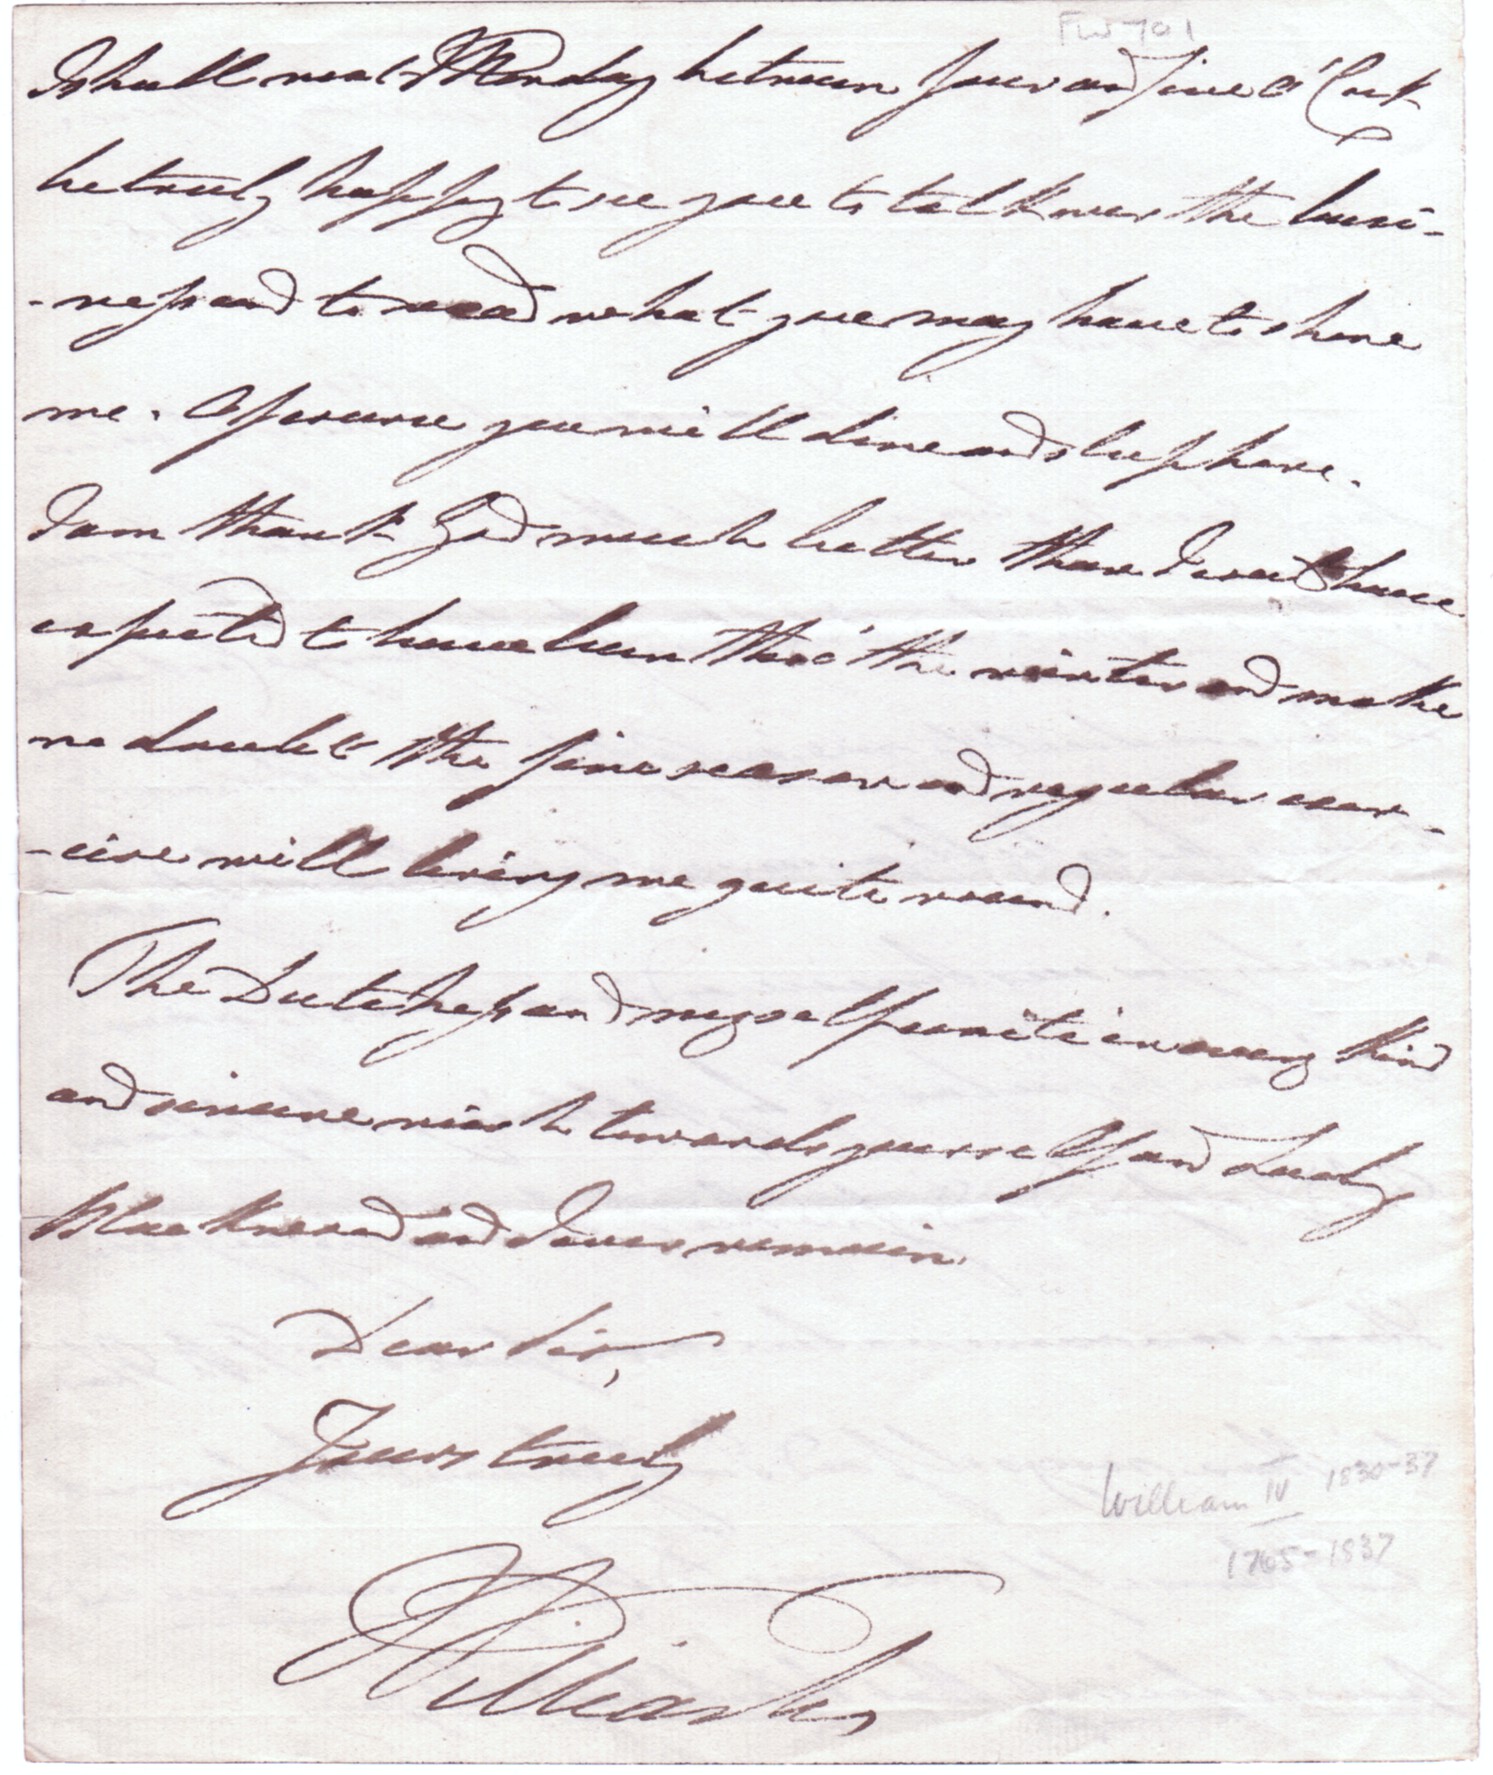 FW 701
I shall next Monday between four and five o'Clock
be truly happy to see you to talk over the busi-
-ness and to read what you may have to shew
me. Of course you will dine and sleep here.
I am thank God much better than I could have
expected to have been thro' the winter and make
no doubt the fine season and regular exer-
-cise will bring me quite round.
The Dutchess and myself unite in every kind
and sincere wish towards yourself and Lady
Blackwood and I ever remain
Dear Sir,
Yours truly
William
William IV 1830-37
1765-1837